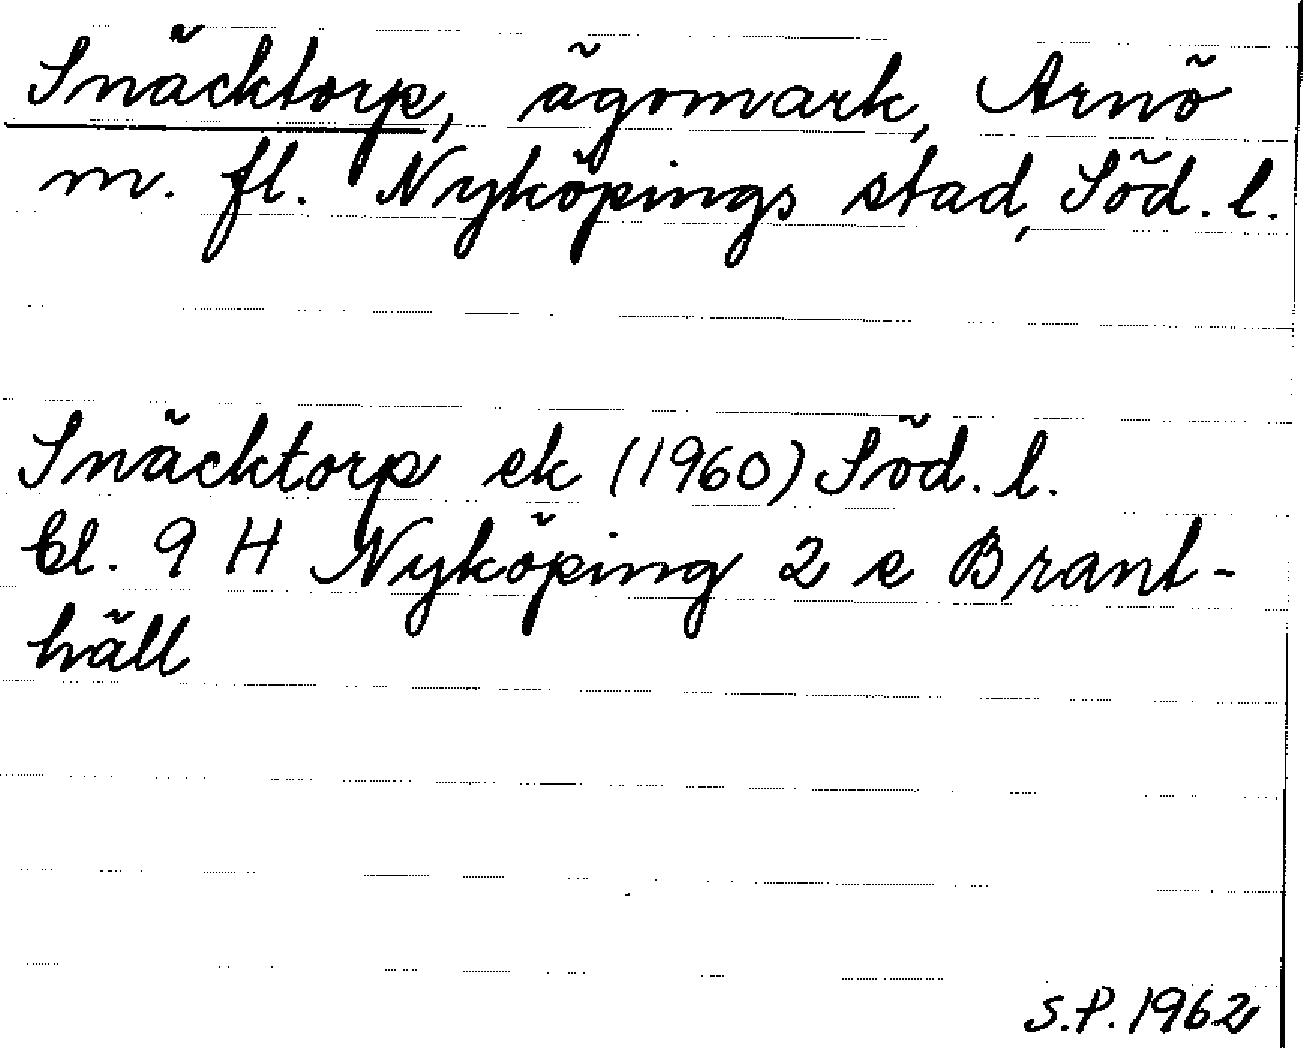 Snäcktorp, ägomark, Arnö
m. fl. Nyköpings stad, Söd. l.
Snäcktorp ek (1960) Söd. l.
bl. 9 H Nyköping 2 e Brant-
häll
S.P. 1962